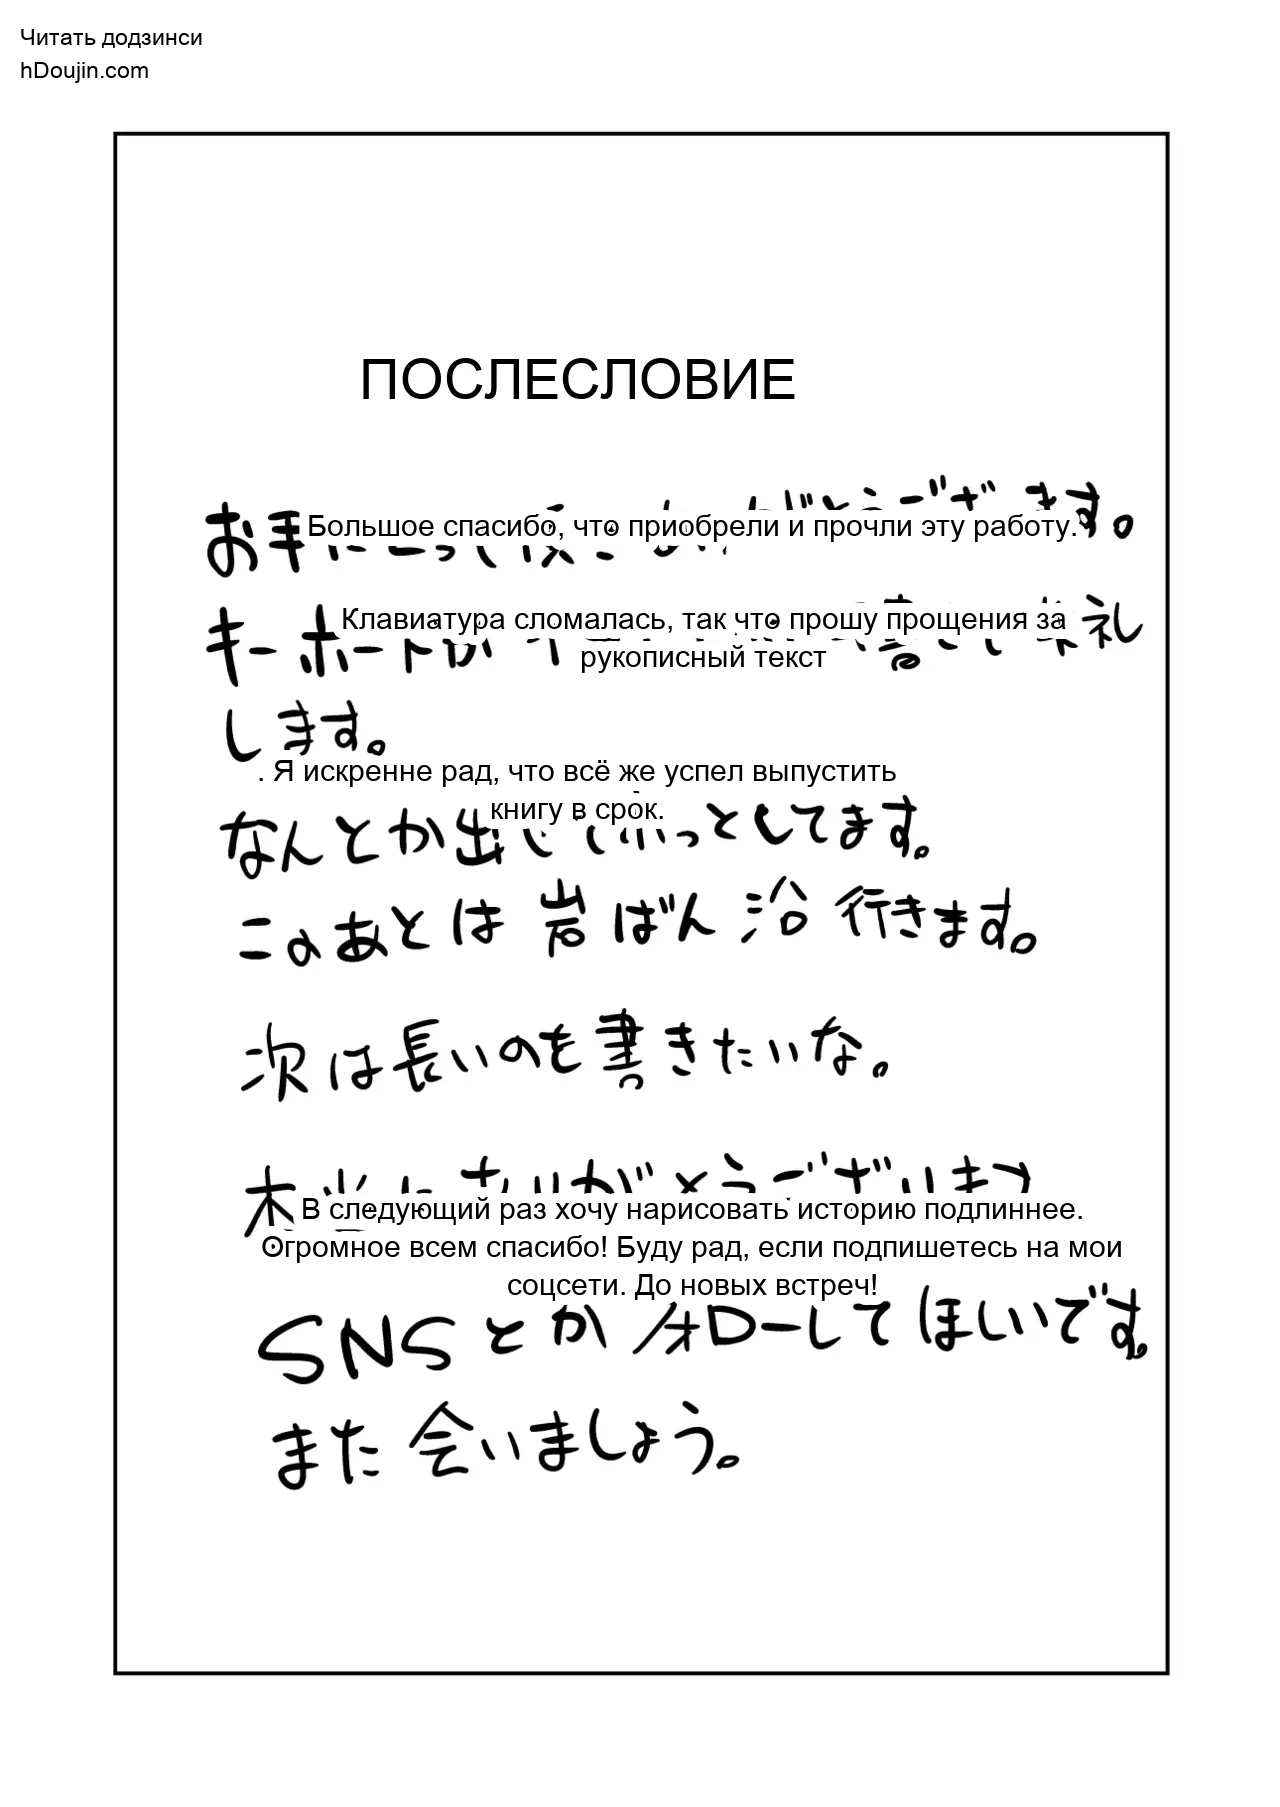 Читать додзинси
hDoujin.com
ПОСЛЕСЛОВИЕ
お手
Большое спасибо, что приобрели и прочли эту работу.
ます。
キーボードが
Клавиатура сломалась, так что прошу прощения за
書き
礼
рукописный текст
します。
. Я искренне рад, что всё же успел выпустить
книгу в срок.
なんとか出せてほっとしてます。
このあとは岩ばん浴行きます。
次は長いのを書きたいな。
本当にありがとうございます
В следующий раз хочу нарисовать историю подлиннее.
Огромное всем спасибо! Буду рад, если подпишетесь на мои
соцсети. До новых встреч!
SNSとかフォローしてほしいです。
また会いましょう。